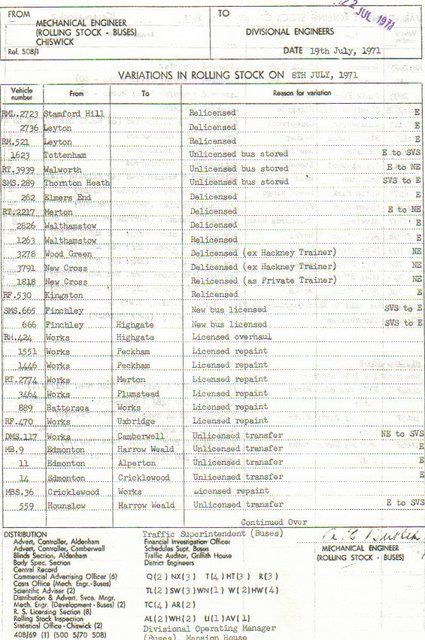 FROM
MECHANICAL ENGINEER
(ROLLING STOCK - BUSES)
CHISWICK
Ref. 508/1
TO
DIVISIONAL ENGINEERS
DATE 19th July, 1971
22 JUL 1971
VARIATIONS IN ROLLING STOCK ON 8TH JULY, 1971
Vehicle number From To Reason for variation
RML.2723 Stamford Hill Relicensed E
2736 Leyton Delicensed E
RM.521 Leyton Relicensed E
1623 Tottenham Unlicensed bus stored E to SVS
RT.3939 Walworth Unlicensed bus stored E to NE
SMS.289 Thornton Heath Unlicensed bus stored SVS to E
262 Elmers End Delicensed E
RT.2217 Merton Delicensed E to NE
2826 Walthamstow Delicensed E
1263 Walthamstow Relicensed E
3278 Wood Green Delicensed (ex Hackney Trainer) NE
3791 New Cross Delicensed (ex Hackney Trainer) NE
1818 New Cross Relicensed (as Private Trainer) NE
RF.530 Kingston Relicensed E
SMS.665 Finchley New bus licensed SVS to E
666 Finchley Highgate New bus licensed SVS to E
RM.424 Works Highgate Licensed overhaul
1551 Works Peckham Licensed repaint
1446 Works Peckham Licensed repaint
RT.2774 Works Merton Licensed repaint
3464 Works Plumstead Licensed repaint
889 Battersea Works Licensed repaint
RF.470 Works Uxbridge Licensed repaint
DMS.117 Works Camberwell Unlicensed transfer NE to SVS
MB.9 Edmonton Harrow Weald Unlicensed transfer E
11 Edmonton Alperton Unlicensed transfer E
14 Edmonton Cricklewood Unlicensed transfer E
MBS.36 Cricklewood Works Licensed repaint
559 Hounslow Harrow Weald Unlicensed transfer E to SVS
Continued Over
DISTRIBUTION
Advert. Controller, Aldenham
Advert. Controller, Camberwell
Blinds Section, Aldenham
Body Spec. Section
Central Record
Commercial Advertising Officer (6)
Costs Office (Mech. Engr.-Buses)
Scientific Adviser (2)
Distribution & Advert. Svce. Mngr.
Mech. Engr. (Development - Buses) (2)
R. S. Licensing Section (8)
Rolling Stock Inspection
Statistical Office - Chiswick (2)
408/69 (1) (500 5/70 508)
Traffic Superintendent (Buses)
Financial Investigation Officer
Schedules Supt. Buses
Traffic Auditor, Griffith House
District Engineers
Q(2) NX(3) T(4) HT(3) R(3)
TL(2) SW(3) WN(1) W(2) HW(4)
TC(4) AR(2)
AL(2) WH(2) U(1) AV(1)
Divisional Operating Manager
(Buses), Mansion House
MECHANICAL ENGINEER
(ROLLING STOCK - BUSES)